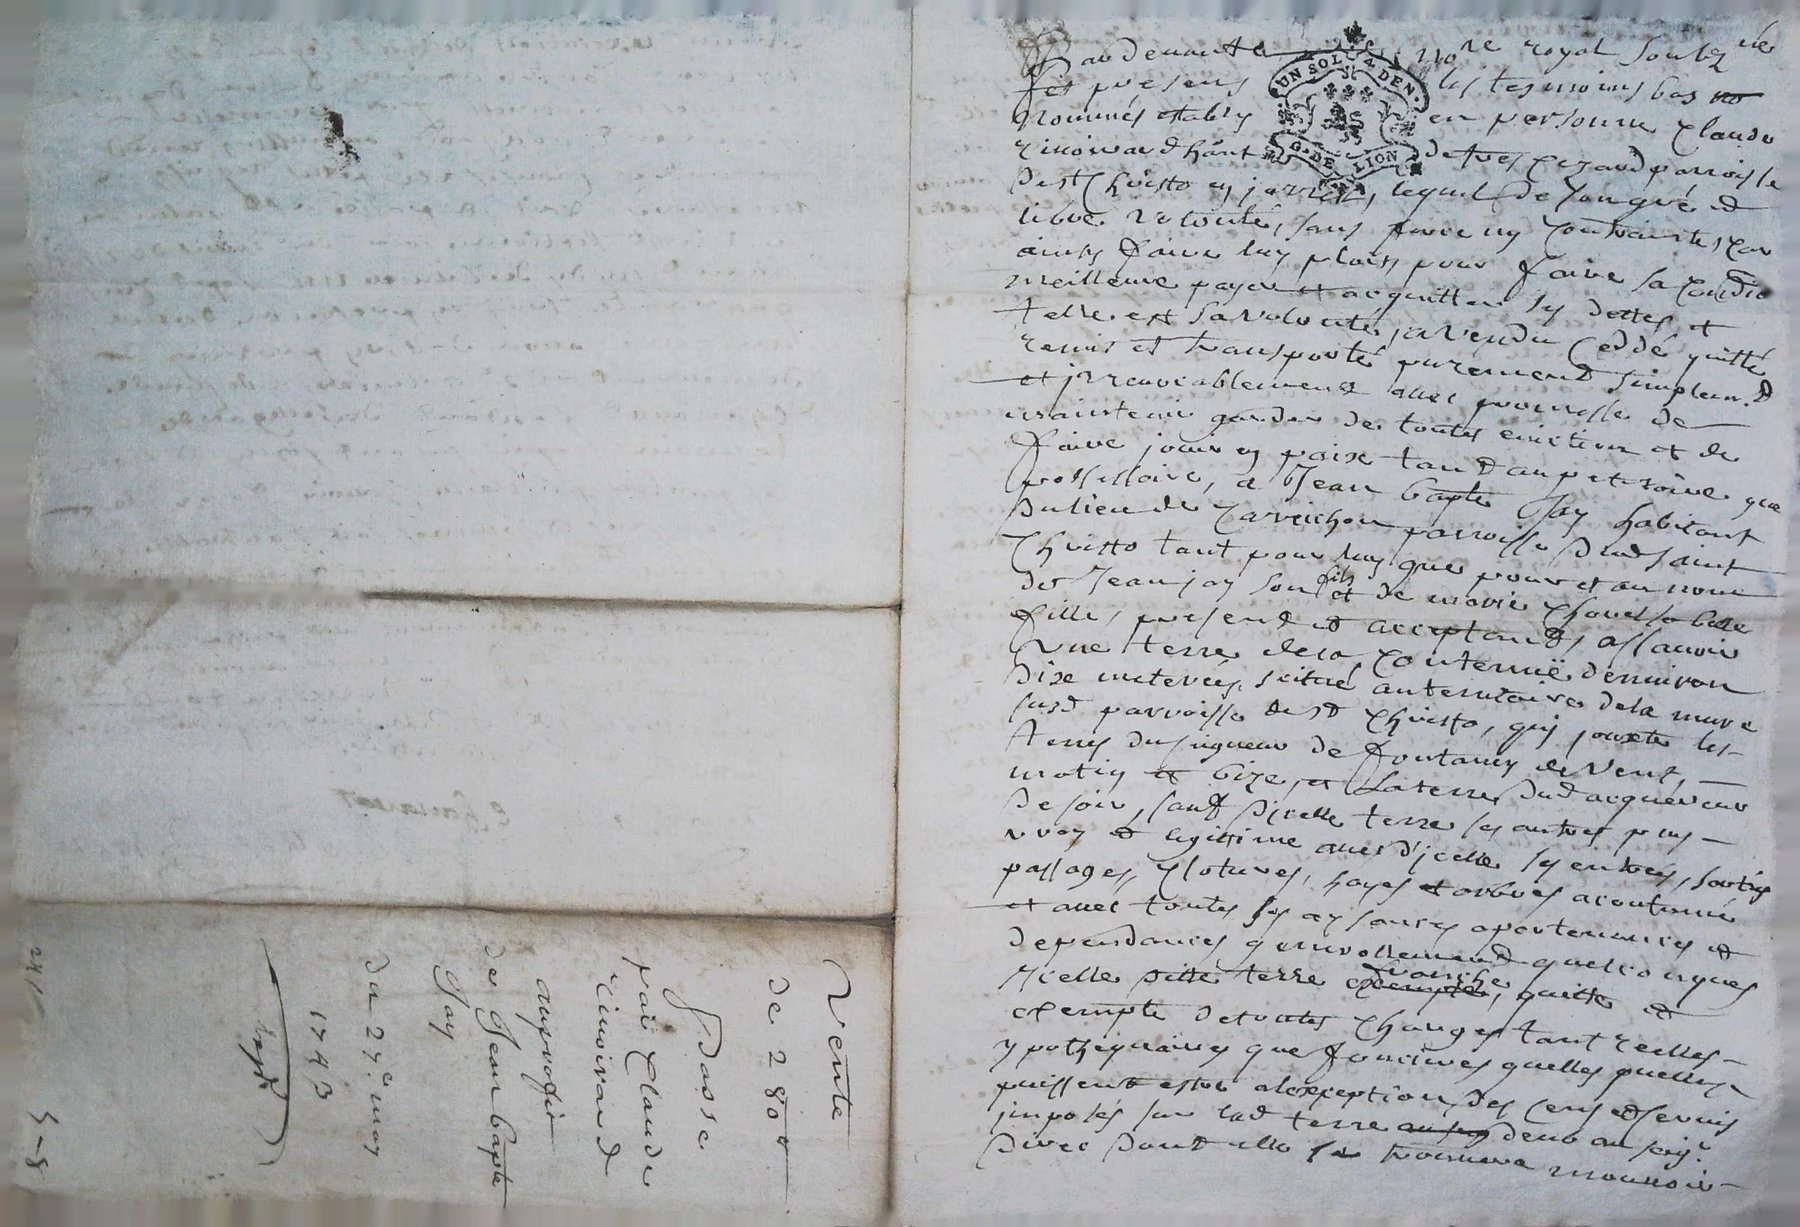 Pardevant le no.re royal soubz né
les presens les tesmoins bas no
nommés estably en personne Claude
rimoirard hânt de tres cezard parroisse
de st Christo en jarrez, lequel de son gré et
libre volonté, sans force ny contrainte, car
ainsy faire luy plaist pour faire sa condio
meilleure payer et acquitter ses dettes, et
telle est sa volonté, a vendu ceddé quitté
remis et transporté purement simplem.t
et jrrevocablement avec promesse de
maintenir garder de toutes eviction et de
faire jouir en paix tant au petitoire que
possessoire, a Jean bapte Jay habitant
du lieu de parroisse dud saint
Christo tant pour luy que pour et au nom
de Jean jay son fils et de marie
fille, present et acceptants, assavoir
Une terre contenuë d'environ
dix meterées, scitué au territoire de la mure
susd parroisse de st Christo, quy joucte les
terres du seigneur de fontaney de vent,
matin et bize, et La terre dud acquéreur
de soir, sauf d'jcelle terre ses autres plus
vray et legittime avec d'jcelle ses entrées, sorties
passages, clotures, hayes et arbres acoutumé
et avec toutes ses aysances apartenances et
dependances generallement quelconques
Jcelle ditte terre exempte franche, quitte et
exempte de toutes charges tant reelles
ypothéquaires que foncieres quelles quelles
puissent estre a lexception des cens et servis
jmposés sur lad terre deub au seig.r
dont elle se trouvera mouvoir
Vente
de 280#
passé
par Claude
rimoirard
au proffit
de Jean bapte
Jay
du 27.e may
1743